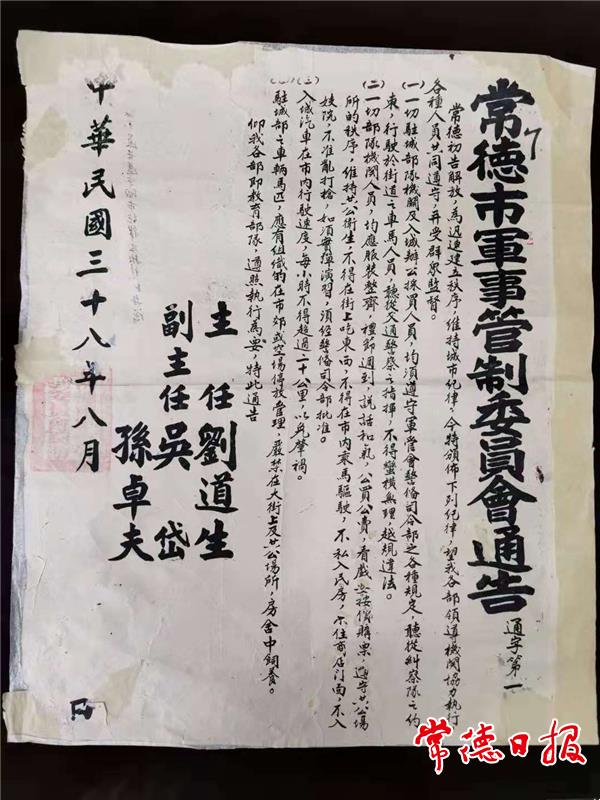 常德市軍事管制委員會通告
7
通字第一
常德初告解放，為迅速建立秩序，維持城市紀律，今特頒佈下列紀律，望我各部領導機關協力執行
各種人員共同遵守，并受群衆監督。
(一)一切駐城部隊機關及入城辦公採買人員，均須遵守軍管會警備司令部之各種規定，聽從糾察隊之約
束，行駛於街道之車馬人員，聽從交通警察之指揮，不得蠻橫無理，越規違法。
(二)一切部隊機關人員，均應服裝整齊，禮節週到，説話和氣，公買公賣，看戲要按價購票，遵守公共場
所的秩序，維持公共衛生，不得在街上吃東西，不得在市内乘馬驅駛，不私入民房，不住商店门面，不入
妓院，不准亂打槍，如須實彈演習，須经警俻司令部批准。
(三)入城汽車在市内行駛速度，每小時不得超過二十公里，以免肇禍。
駐城部之車輛馬匹，應有组織的在市郊或空場停放管理，嚴禁在大街上及公共場所，房舍中飼养。
仰我各部即教育部隊，遵照執行為要，特此通告
主任劉道生
副主任吳岱
孫卓夫
中華民國三十八年八月
常德日报